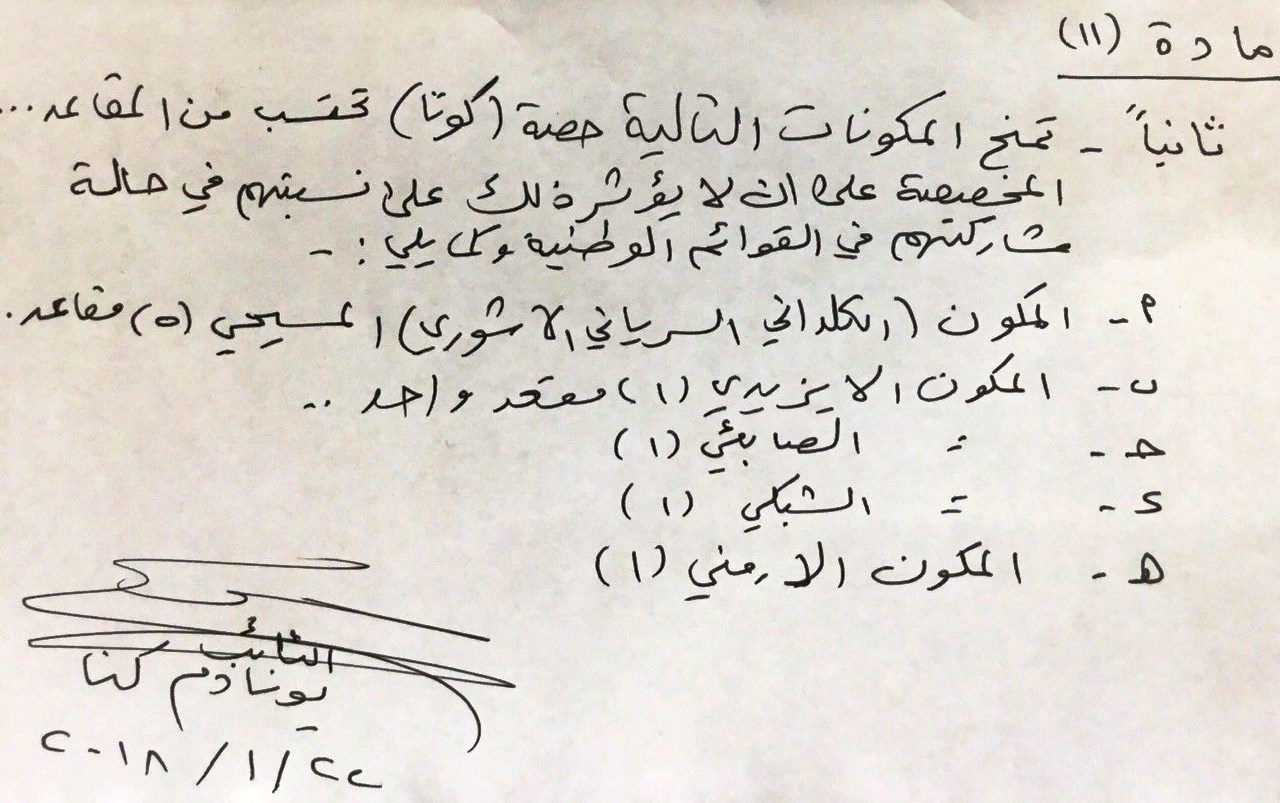 مادة (١١)
ثانياً - تمنح المكونات التالية حصة (كوتا) تحتسب من المقاعد...
المخصصة على ان لا يؤثر ذلك على نسبتهم في حالة
مشاركتهم في القوائم الوطنية وكما يلي :-
أ- المكون (الكلداني السرياني الاشوري) المسيحي (٥) مقاعد.
ب- المكون الايزيدي (١) مقعد واحد ..
حـ - = الصابئي (١)
د - = الشبكي (١)
هـ - المكون الارمني (١)
النائب
يونادم كنا
٢٠١٨/١/٢٢